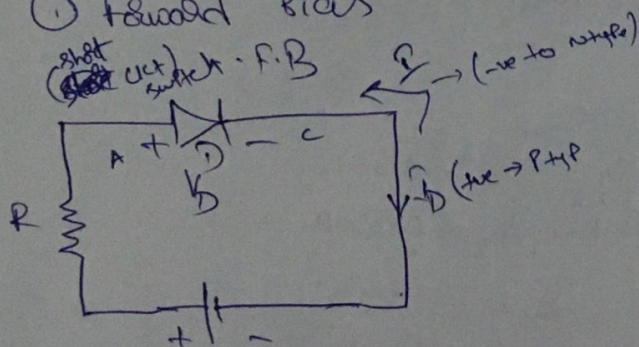 ① Forward Bias
(short ckt) switch. F.B
I → (-ve to N-type)
A + D - C
V_D
I_D (+ve → P typ
R
+ -